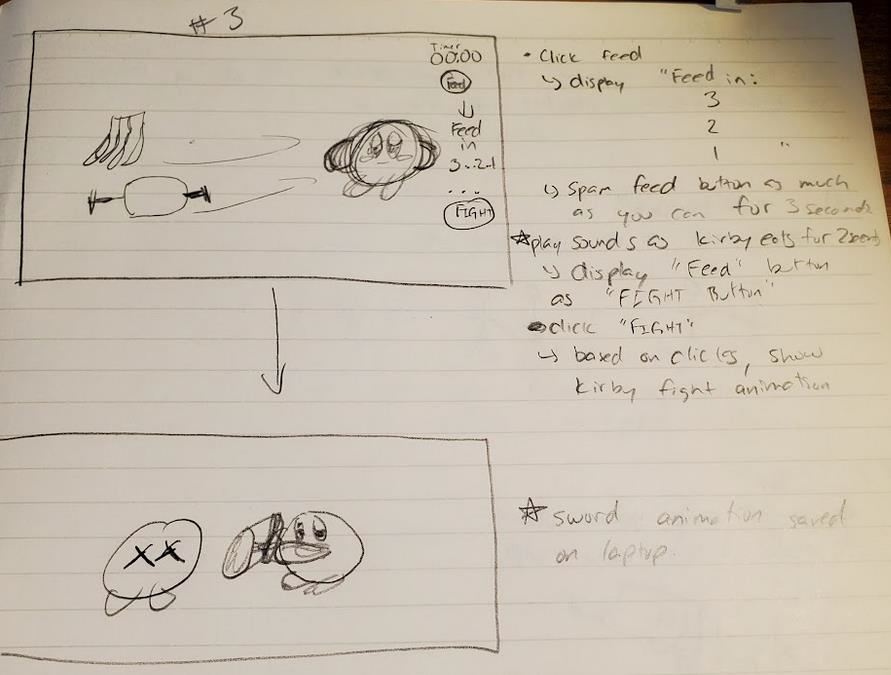 #3
Timer
00:00
Feed
Feed
in
3..2..1
...
FIGHT
• Click feed
↳ display "Feed in:
3
2
1 "
↳ Spam feed button as much
as you can for 3 seconds
☆ play sounds as kirby eats for 2 seconds
↳ display "Feed" button
as "FIGHT Button"
• click "FIGHT"
↳ based on clicks, show
kirby fight animation
☆ sword animation saved
on laptop.